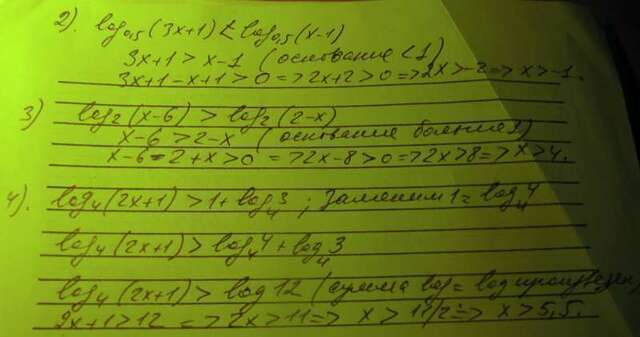 2). log0,5 (3x+1) < log0,5 (x-1)
3x+1 > x-1 (основание <1)
3x+1-x+1>0 => 2x+2>0 => 2x>-2 => x>-1.
3) log2(x-6) > log2(2-x)
x-6 > 2-x (основание больше 1)
x-6-2+x>0 => 2x-8>0 => 2x>8 => x>4.
4). log4(2x+1) > 1+log4 3 ; Заменим 1 = log4 4
log4(2x+1) > log4 4 + log4 3
log4(2x+1) > log 12 (сумма log = log произведен)
2x+1>12 => 2x>11 => x > 11/2 => x > 5,5.